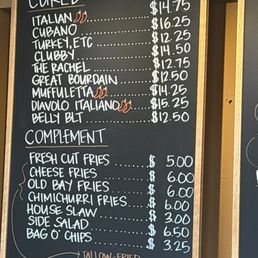 CURED
ITALIAN $14.75
CUBANO $16.25
TURKEY, ETC $12.25
CLUBBY $14.50
THE RACHEL $12.75
GREAT BOURDAIN $12.50
MUFFULETTA $14.25
DIAVOLO ITALIANO $15.25
BELLY BLT $12.50
COMPLEMENT
FRESH CUT FRIES $ 5.00
CHEESE FRIES $ 6.00
OLD BAY FRIES $ 6.00
CHIMICHURRI FRIES $ 6.00
HOUSE SLAW $ 3.00
SIDE SALAD $ 6.50
BAG O' CHIPS $ 3.25
TALLOW-FRIED